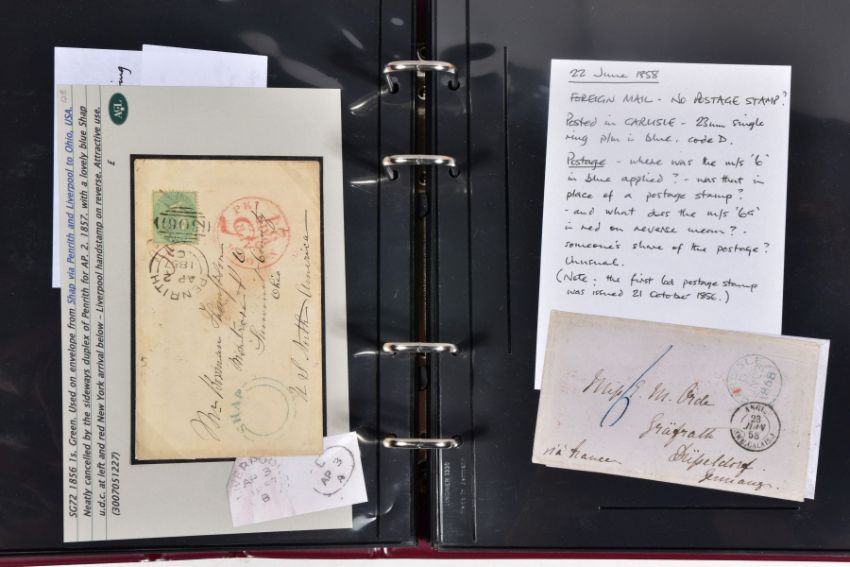 A&L
SG72 1856 1s. Green. Used on envelope from Shap via Penrith and Liverpool to Ohio, USA.
Neatly cancelled by the sideways duplex of Penrith for AP. 2. 1857. with a lovely blue Shap
u.d.c. at left and red New York arrival below - Liverpool handstamp on reverse. Attractive use.
(3007051227) £
PENRITH
Mr
Ohio
U S North America
SHAP
AP 3
A
22 June 1858
FOREIGN MAIL - NO POSTAGE STAMP?
Posted in CARLISLE - 23mm single
ring p/m in blue. code D.
Postage - where was the m/s '6'
in blue applied? - was that in
place of a postage stamp?
- and what does the m/s '6G'
in red on reverse mean? -
someone's share of the postage?
Unusual.
(Note: the first 6d postage stamp
was issued 21 October 1856.)
1858
6
Miss M. Orde
Gräfrath
Düsseldorf
Germany
via France
ANGL.
23
JUIN
58